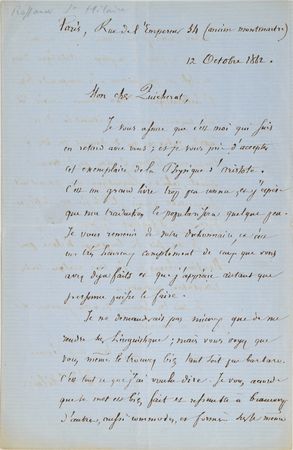 St Hilaire
Paris, Rue de l'Empereur 34 (ancien Montmartre)
12 Octobre 1862.
Mon cher Quicherat,
Je vous assure que c'est moi qui suis
en retard avec vous ; et je vous prie d'accepter
cet exemplaire de la Physique d'Aristote.
C'est un grand livre trop peu connu, et j'espère
que ma traduction le popularisera quelque peu.
Je vous remercie de votre dictionnaire, ce sera
un très heureux complément de ceux que vous
avez déjà faits et que j'apprécie autant que
personne puisse le faire.
Je ne demanderais pas mieux que de me
rendre sur Linguistique ; mais vous voyez que
vous même le trouvez bien tant soit peu barbare.
C'est tout ce que j'ai voulu dire. Je vous accorde
que le mot est bien fait et ressemble à beaucoup
d'autres, aussi commodes, et formés sur le même